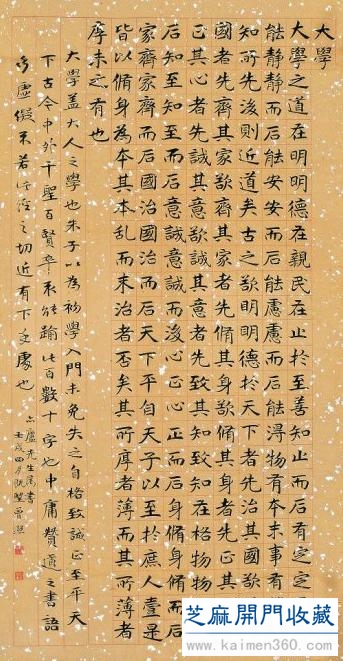 大學
大學之道在明明德在親民在止於至善知止而后有定定而后
能靜靜而后能安安而后能慮慮而后能淂物有本末事有終始
知所先後則近道矣古之欲明明德於天下者先治其國欲治其
國者先齊其家欲齊其家者先脩其身欲脩其身者先正其心欲
正其心者先誠其意欲誠其意者先致其知致知在格物物格而
后知至知至而后意誠意誠而後心正心正而后身脩身脩而后
家齊家齊而后國治國治而后天下平自天子以至於庶人壹是
皆以脩身為本其本亂而末治者否矣其所厚者薄而其所薄者
厚未之有也
大學蓋大人之學也朱子以為初學入門未免失之自格致誠正至平天
下古今中外千聖百賢卒未能踰此百數十字也中庸贊道之書語
虛假不若此經之切近有下手處也
廬先生屬書
壬戌四月既望曾熙
芝麻開門收藏
www.kaimen360.com